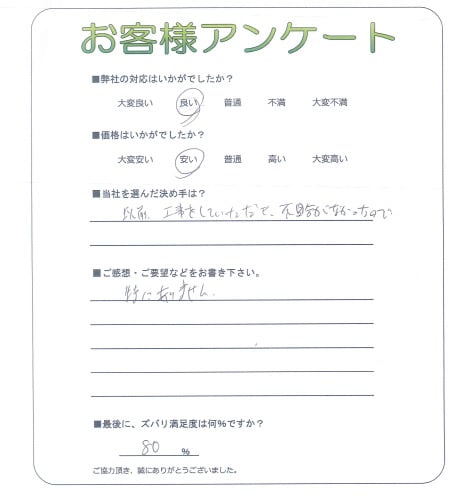 お客様アンケート
■弊社の対応はいかがでしたか？
大変良い 良い 普通 不満 大変不満
■価格はいかがでしたか？
大変安い 安い 普通 高い 大変高い
■当社を選んだ決め手は？
以前、工事をしていただいて、不具合がなかったので
■ご感想・ご要望などをお書き下さい。
特にありません。
■最後に、ズバリ満足度は何%ですか？
80 %
ご協力頂き、誠にありがとうございました。